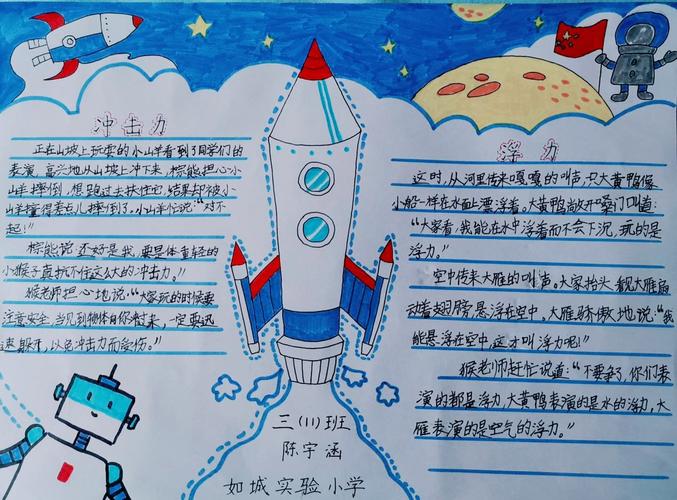 冲击力
正在山坡上玩耍的小山羊看到了同学们的
表演,高兴地从山坡上冲下来,棕熊担心小
山羊摔倒,想跑过去扶住它,结果却被小
山羊撞得差点儿摔倒了。小山羊忙说:“对不
起!”
棕熊说:还好是我,要是体重轻的
小猴子真抗不住这么大的冲击力。”
猴老师担心地说:“大家玩的时候要
注意安全,当见到物体向你冲过来,一定要迅
速躲开,以免冲击力而受伤。”
浮力
这时,从河里传来嘎嘎的叫声,只大黄鸭像
小船一样在水面上漂浮着。大黄鸭敞开嗓门叫道:
“大家看,我能在水中浮着而不会下沉,玩的是
浮力。”
空中传来大雁的叫声。大家抬头,看见大雁扇
动着翅膀,悬浮在空中。大雁骄傲地说:“我
能悬浮在空中,这才叫浮力呢!”
猴老师赶忙说道:“不要争了,你们表
演的都是浮力,大黄鸭表演的是水的浮力,大
雁表演的是空气的浮力。”
三(11)班
陈宇涵
如城实验小学